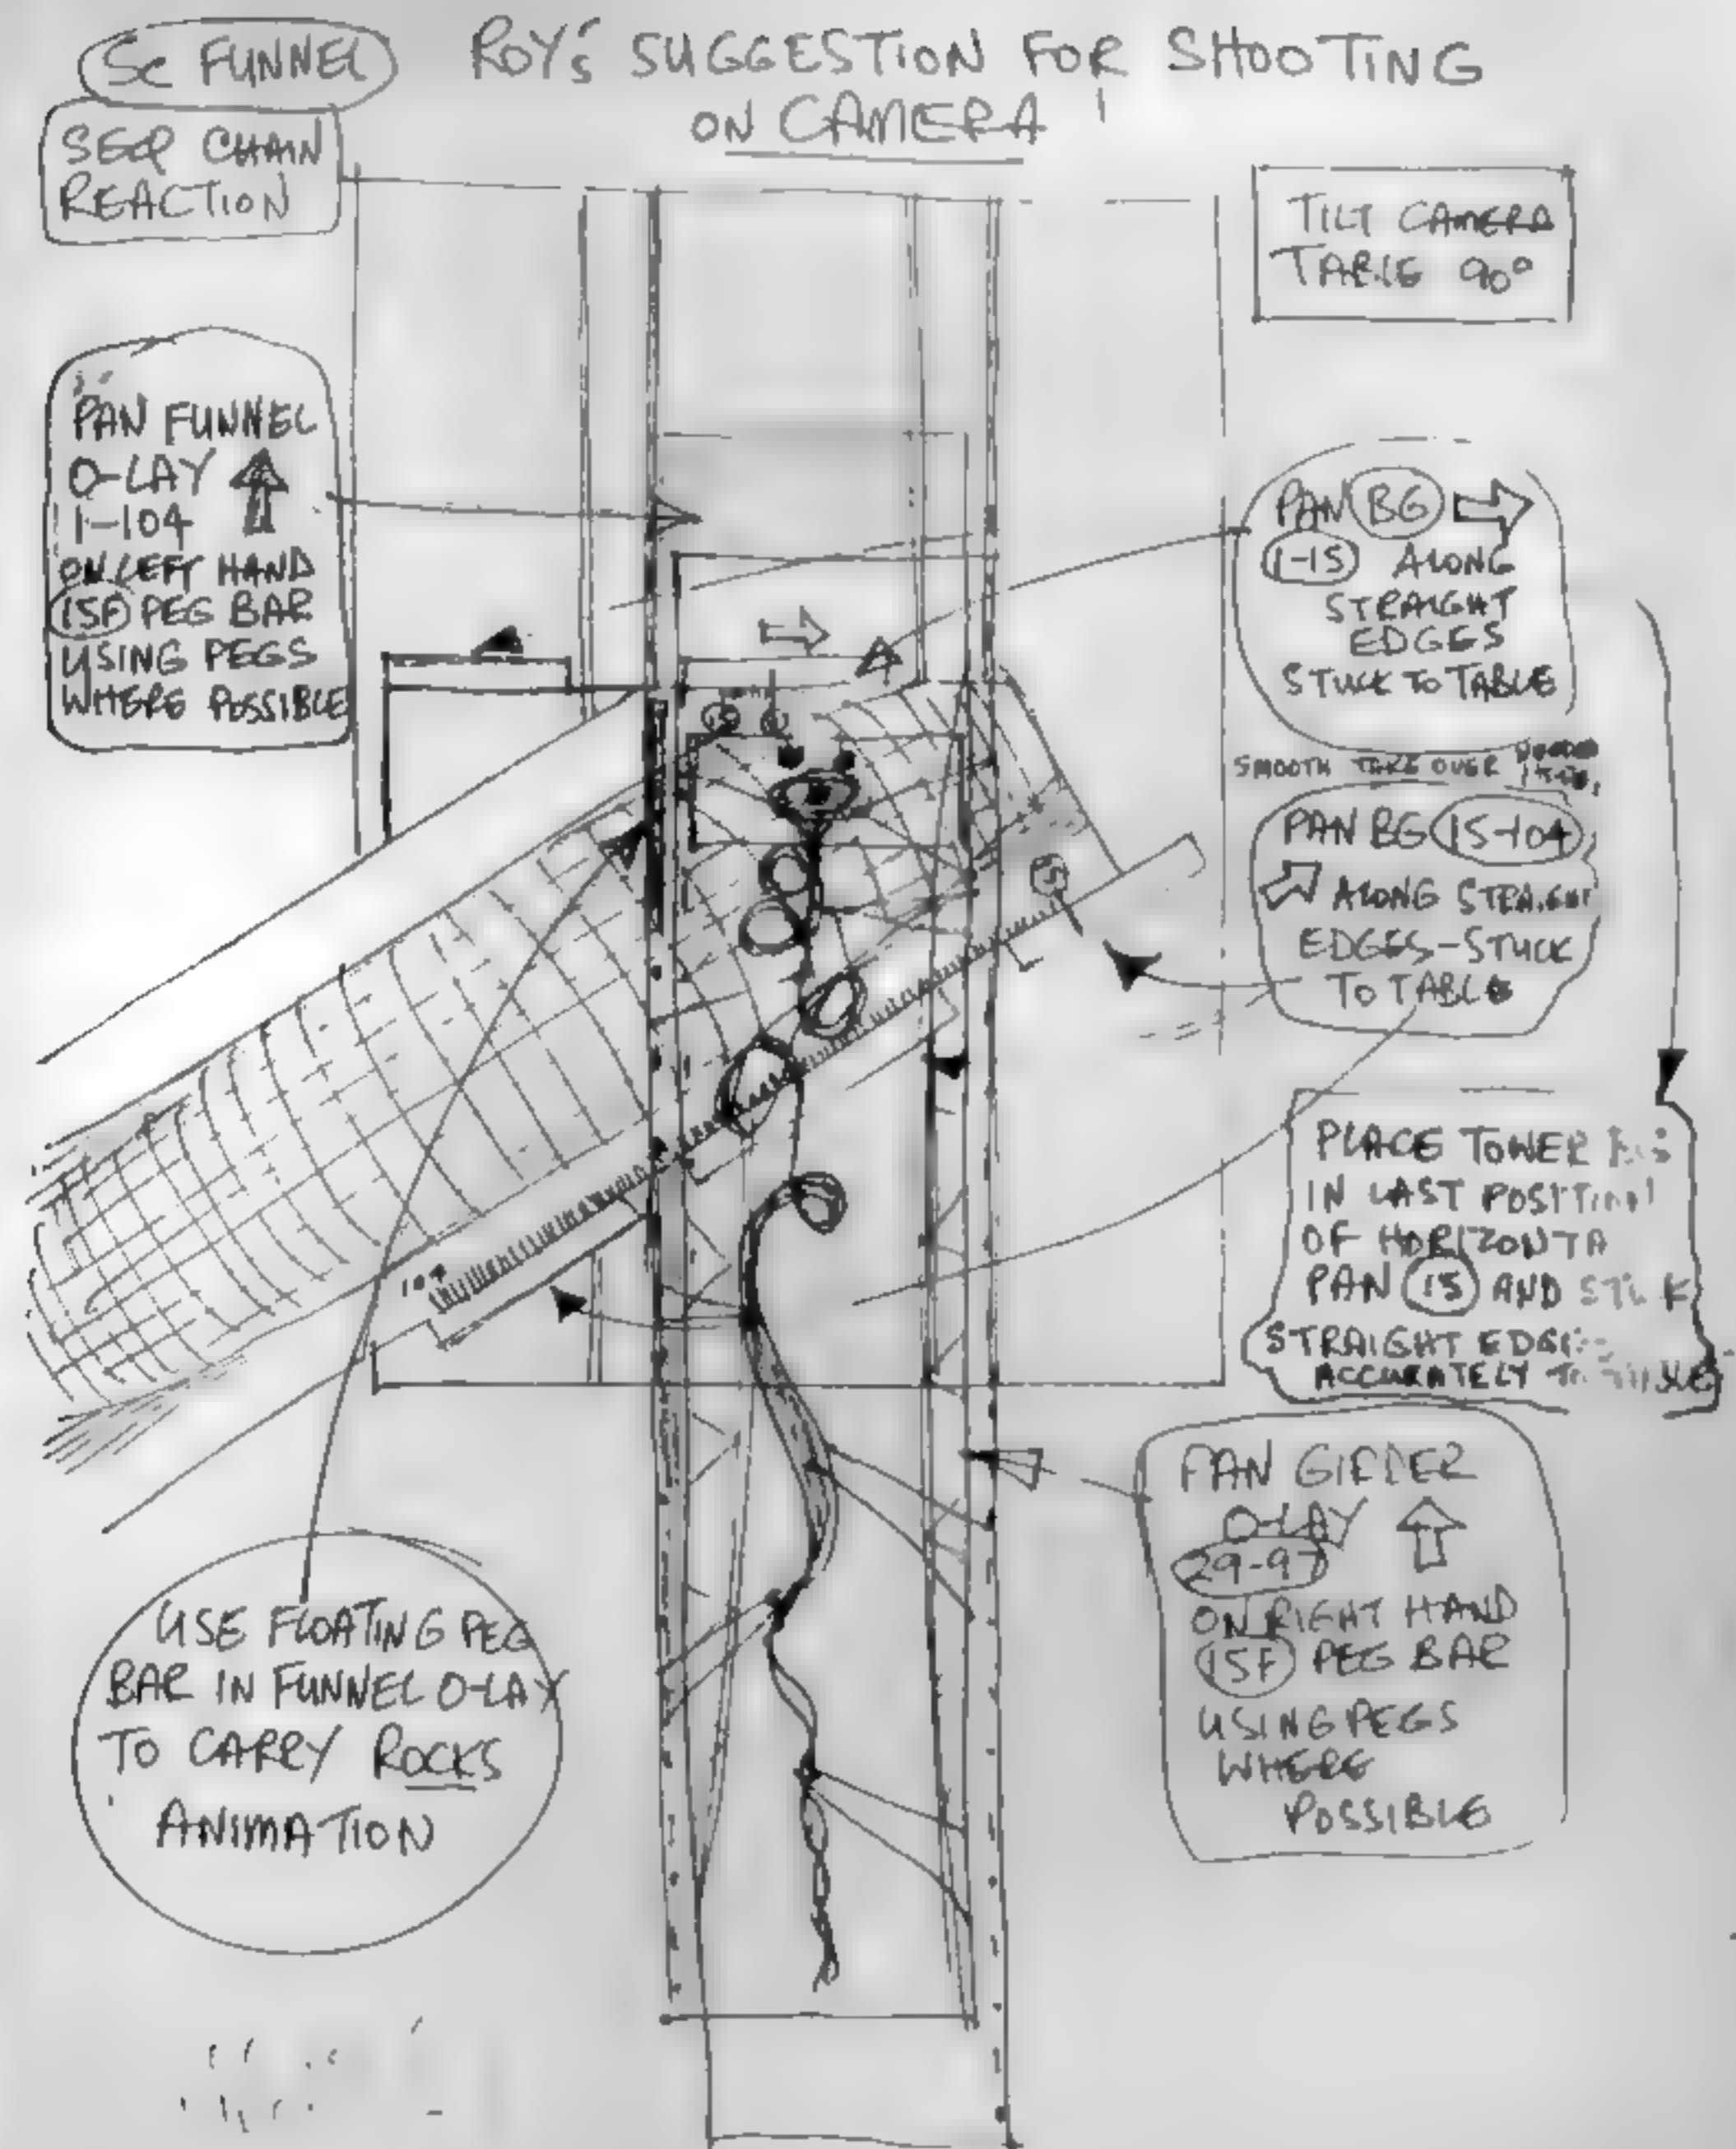 SC FUNNEL
ROY'S SUGGESTION FOR SHOOTING
ON CAMERA
SEQ CHAIN
REACTION
TILT CAMERA
TABLE 90°
PAN FUNNEL
O-LAY
1-104
ON LEFT HAND
15F PEG BAR
USING PEGS
WHERE POSSIBLE
PAN BG
1-15 ALONG
STRAIGHT
EDGES
STUCK TO TABLE
SMOOTH TAKE OVER
PAN BG 15-104
ALONG STRAIGHT
EDGES-STUCK
TO TABLE
15
104
PLACE TOWER
IN LAST POSITION
OF HORIZONTA
PAN 15 AND STUCK
STRAIGHT EDGES
ACCURATELY TO TABLE
PAN GIRDER
O-LAY
29-97
ON RIGHT HAND
15F PEG BAR
USING PEGS
WHERE
POSSIBLE
USE FLOATING PEG
BAR IN FUNNEL O-LAY
TO CARRY ROCKS
ANIMATION